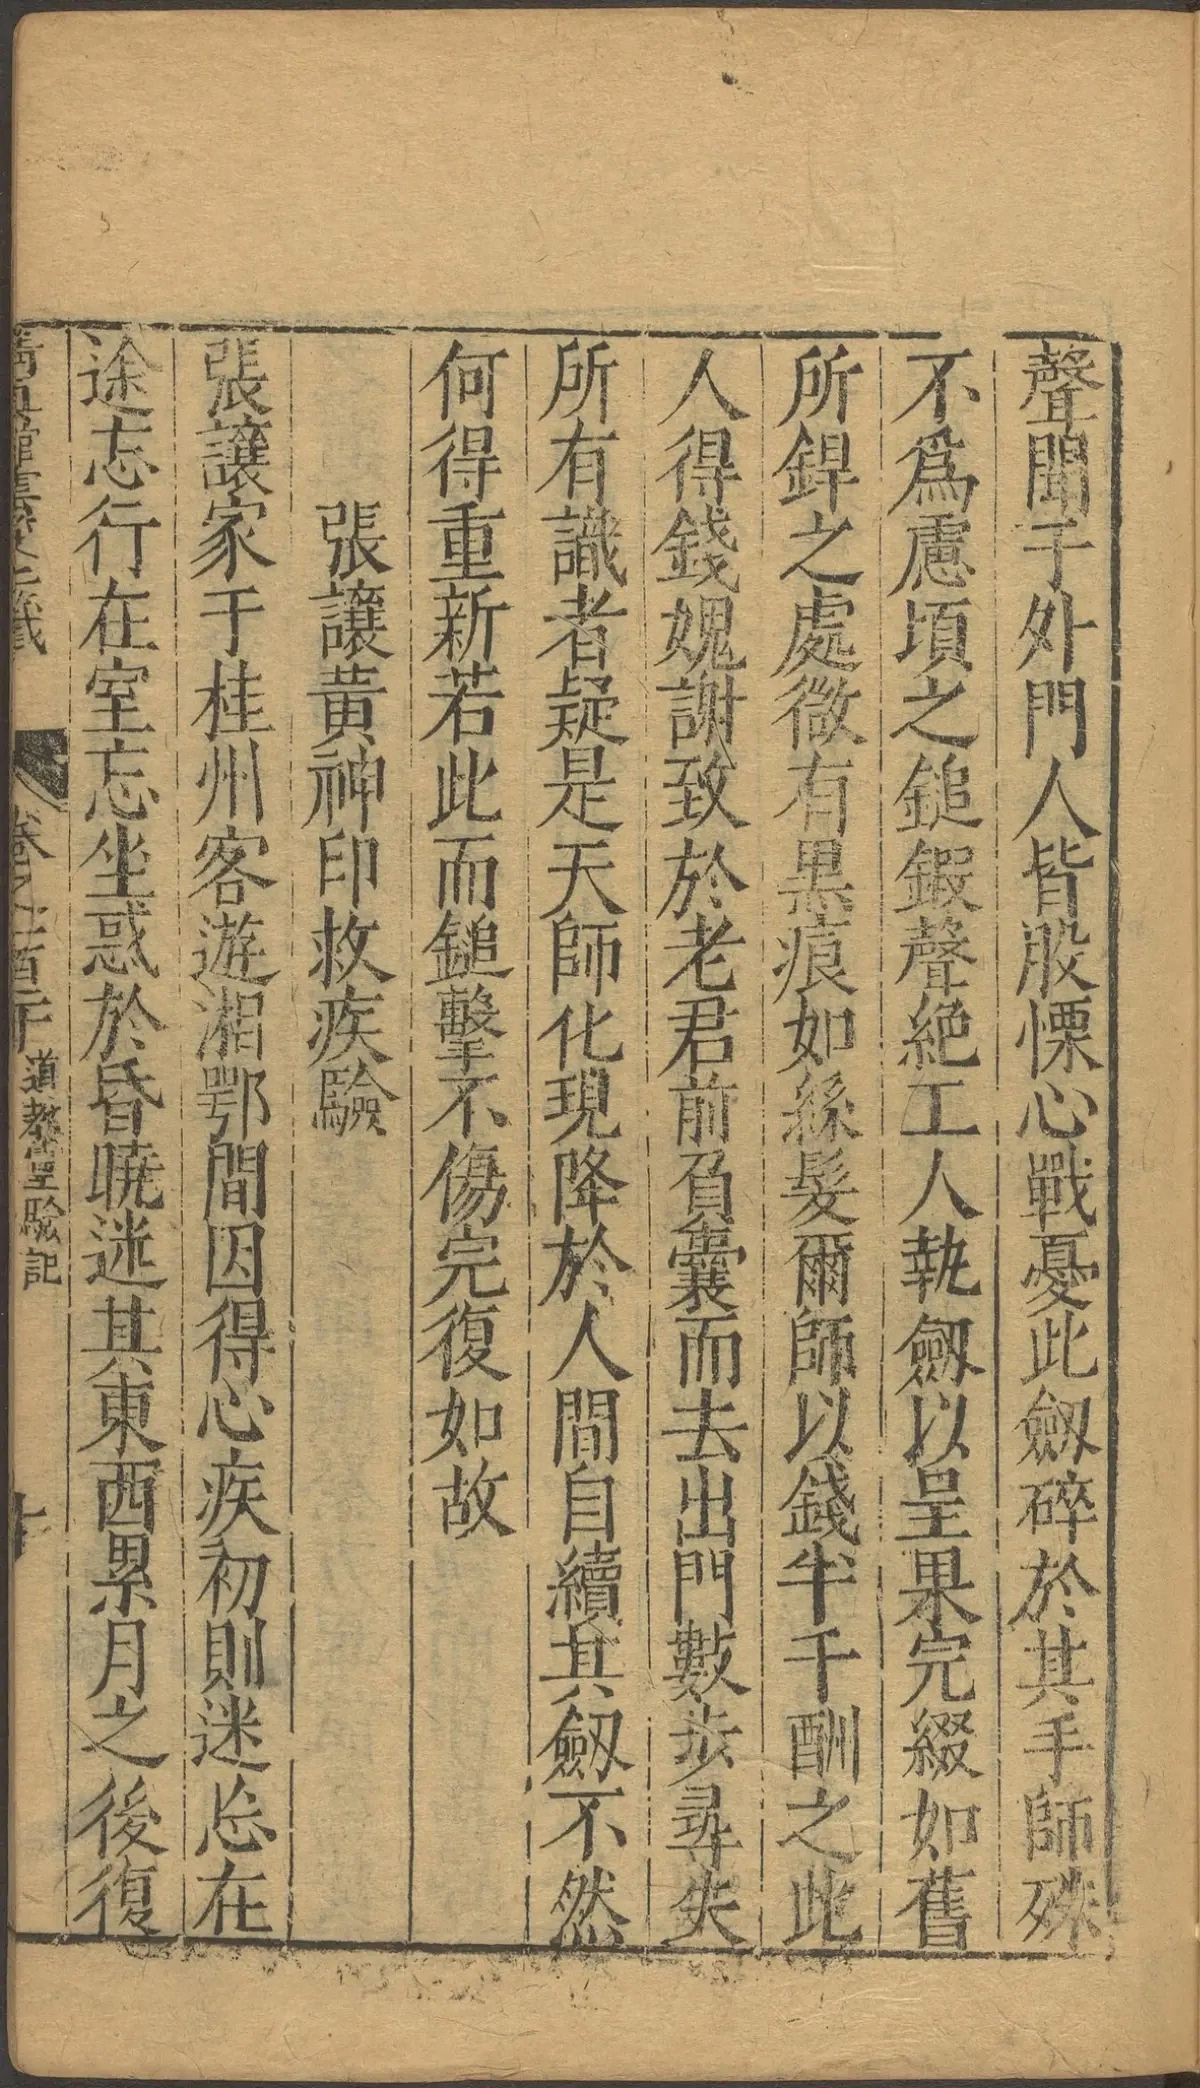 聲聞于外門人皆股慄心戰憂此劔碎於其手師殊
不爲慮頃之鎚鍜聲絶工人執劔以呈果完綴如舊
所銲之處微有黒痕如絲髮爾師以錢半千酬之此
人得錢媿謝致於老君前負囊而去出門數歩尋失
所有識者疑是天師化現降於人間自續其劔不然
何得重新若此而鎚擊不傷完復如故
張讓黃神印救疾驗
張讓家于桂州客遊湘鄂間因得心疾初則迷忘在
途忘行在室忘坐惑於昏曉迷其東西累月之後復
卷之一百二十
道教靈驗記
十